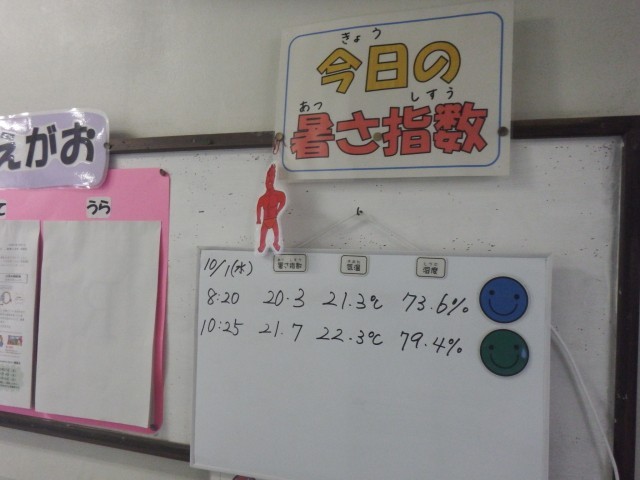 きょう
今日の
あつ しすう
暑さ指数
えがお
うら
10/1(水) 暑さ指数 気温 湿度
8:20 20.3 21.3℃ 73.6%
10:25 21.7 22.3℃ 79.4%